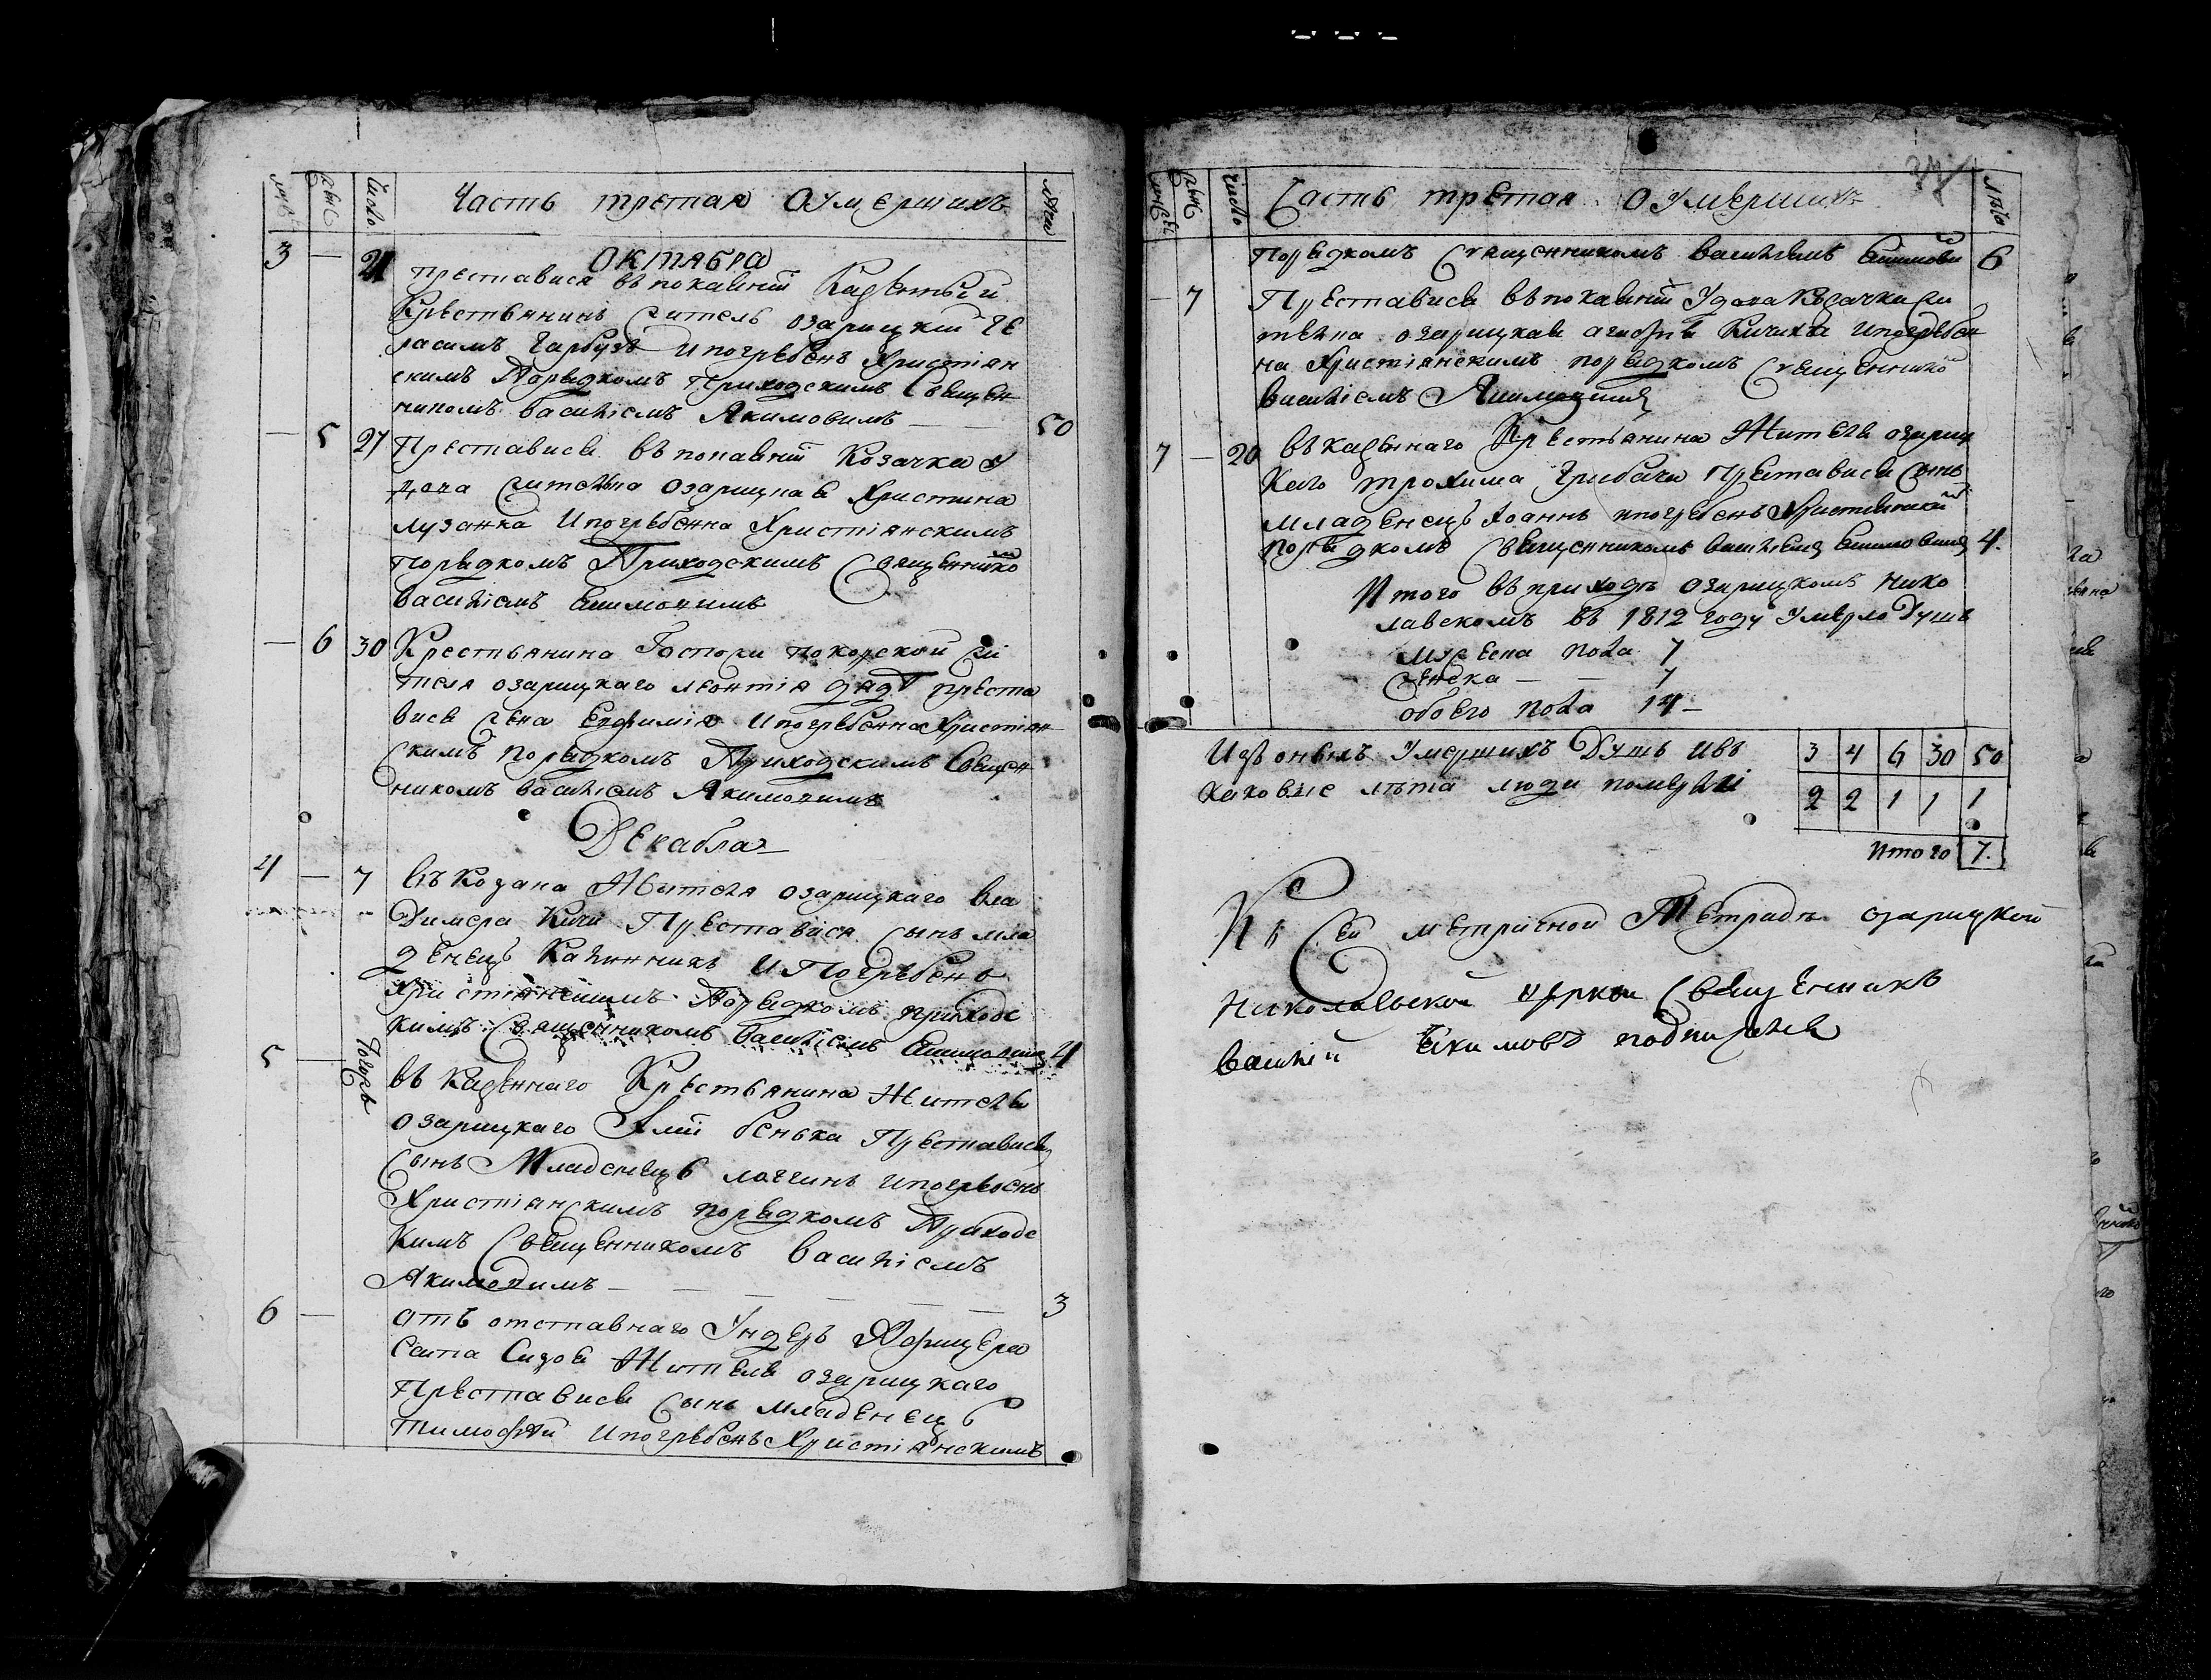 Часть третая О умершихъ
Число
Лета
Октября
3 — 21 преставися въ покаянии Казенный
Крестьянинъ житель озарицкий Ге
расимъ Гарбузъ и погребенъ христіан
скимъ порядкомъ Приходскимъ Священ
никомъ василіемъ Якимовимъ — 50
— 5 27 Преставися въ покаянии Козачка у
дова жителка озарицкая Христина
лузанка и погребенна Христіанскимъ
порядкомъ Приходскимъ Священнико
василіемъ Якимовимъ
— 6 30 Крестьянина Госпожи покорской жи
теля озарицкаго леонтія преста
вися жена Евфимія и погребенна Христіан
скимъ порядкомъ Приходскимъ Священ
никомъ василіемъ Якимовимъ
Декабра
4 — 7 въ Козака Жителя озарицкаго вла
димера Кичи Преставися сынъ мла
денецъ Каллиникъ и Погребенъ
Христіанскимъ Порядкомъ приходс
кимъ Священникомъ василіемъ Якимовимъ 4
5 — въ Казеннаго Крестьянина Жителя
озарицкаго бенька Преставися
сынъ Младенецъ логгинъ и погребенъ
Христіанскимъ порядкомъ Приходс
кимъ Священникомъ василіемъ
Якимовимъ — 3
6 — отъ отставнаго Ундеръ Афицера
Жителя озарицкаго
Преставися сынъ младенецъ
Тимофей и погребенъ Христіанскимъ
Часть третая О умершихъ
Число
Лета
порядкомъ священникомъ василиемъ Якимови 6
— 7 Преставися въ покаянии Удова Козачка жи
телка озарицкая Кичиха и погребен
на Христіанскимъ порядкомъ священнико
василіемъ
7 — 20 въ казеннаго Крестьянина Жителя озариц
каго трохима Грибача Преставися сынъ
младенецъ Иоаннъ и погребенъ Христіанский
порядкомъ священникомъ василиемъ Якимовимъ 4.
Итого въ приходѣ озарицкомъ Нико
лаевскомъ въ 1812 году умерло Душъ
мужеска пола 7
женска — — 7
обоего пола 14 —
Изъ онныхъ Умершихъ Душъ и въ 3 4 6 30 50
каковые лѣта люди померли 2 2 1 1 1
Итого 7.
Къ сей метричной Тетрадѣ озарицкой
Николаевской церкви Священникъ
василий Якимовъ подписался